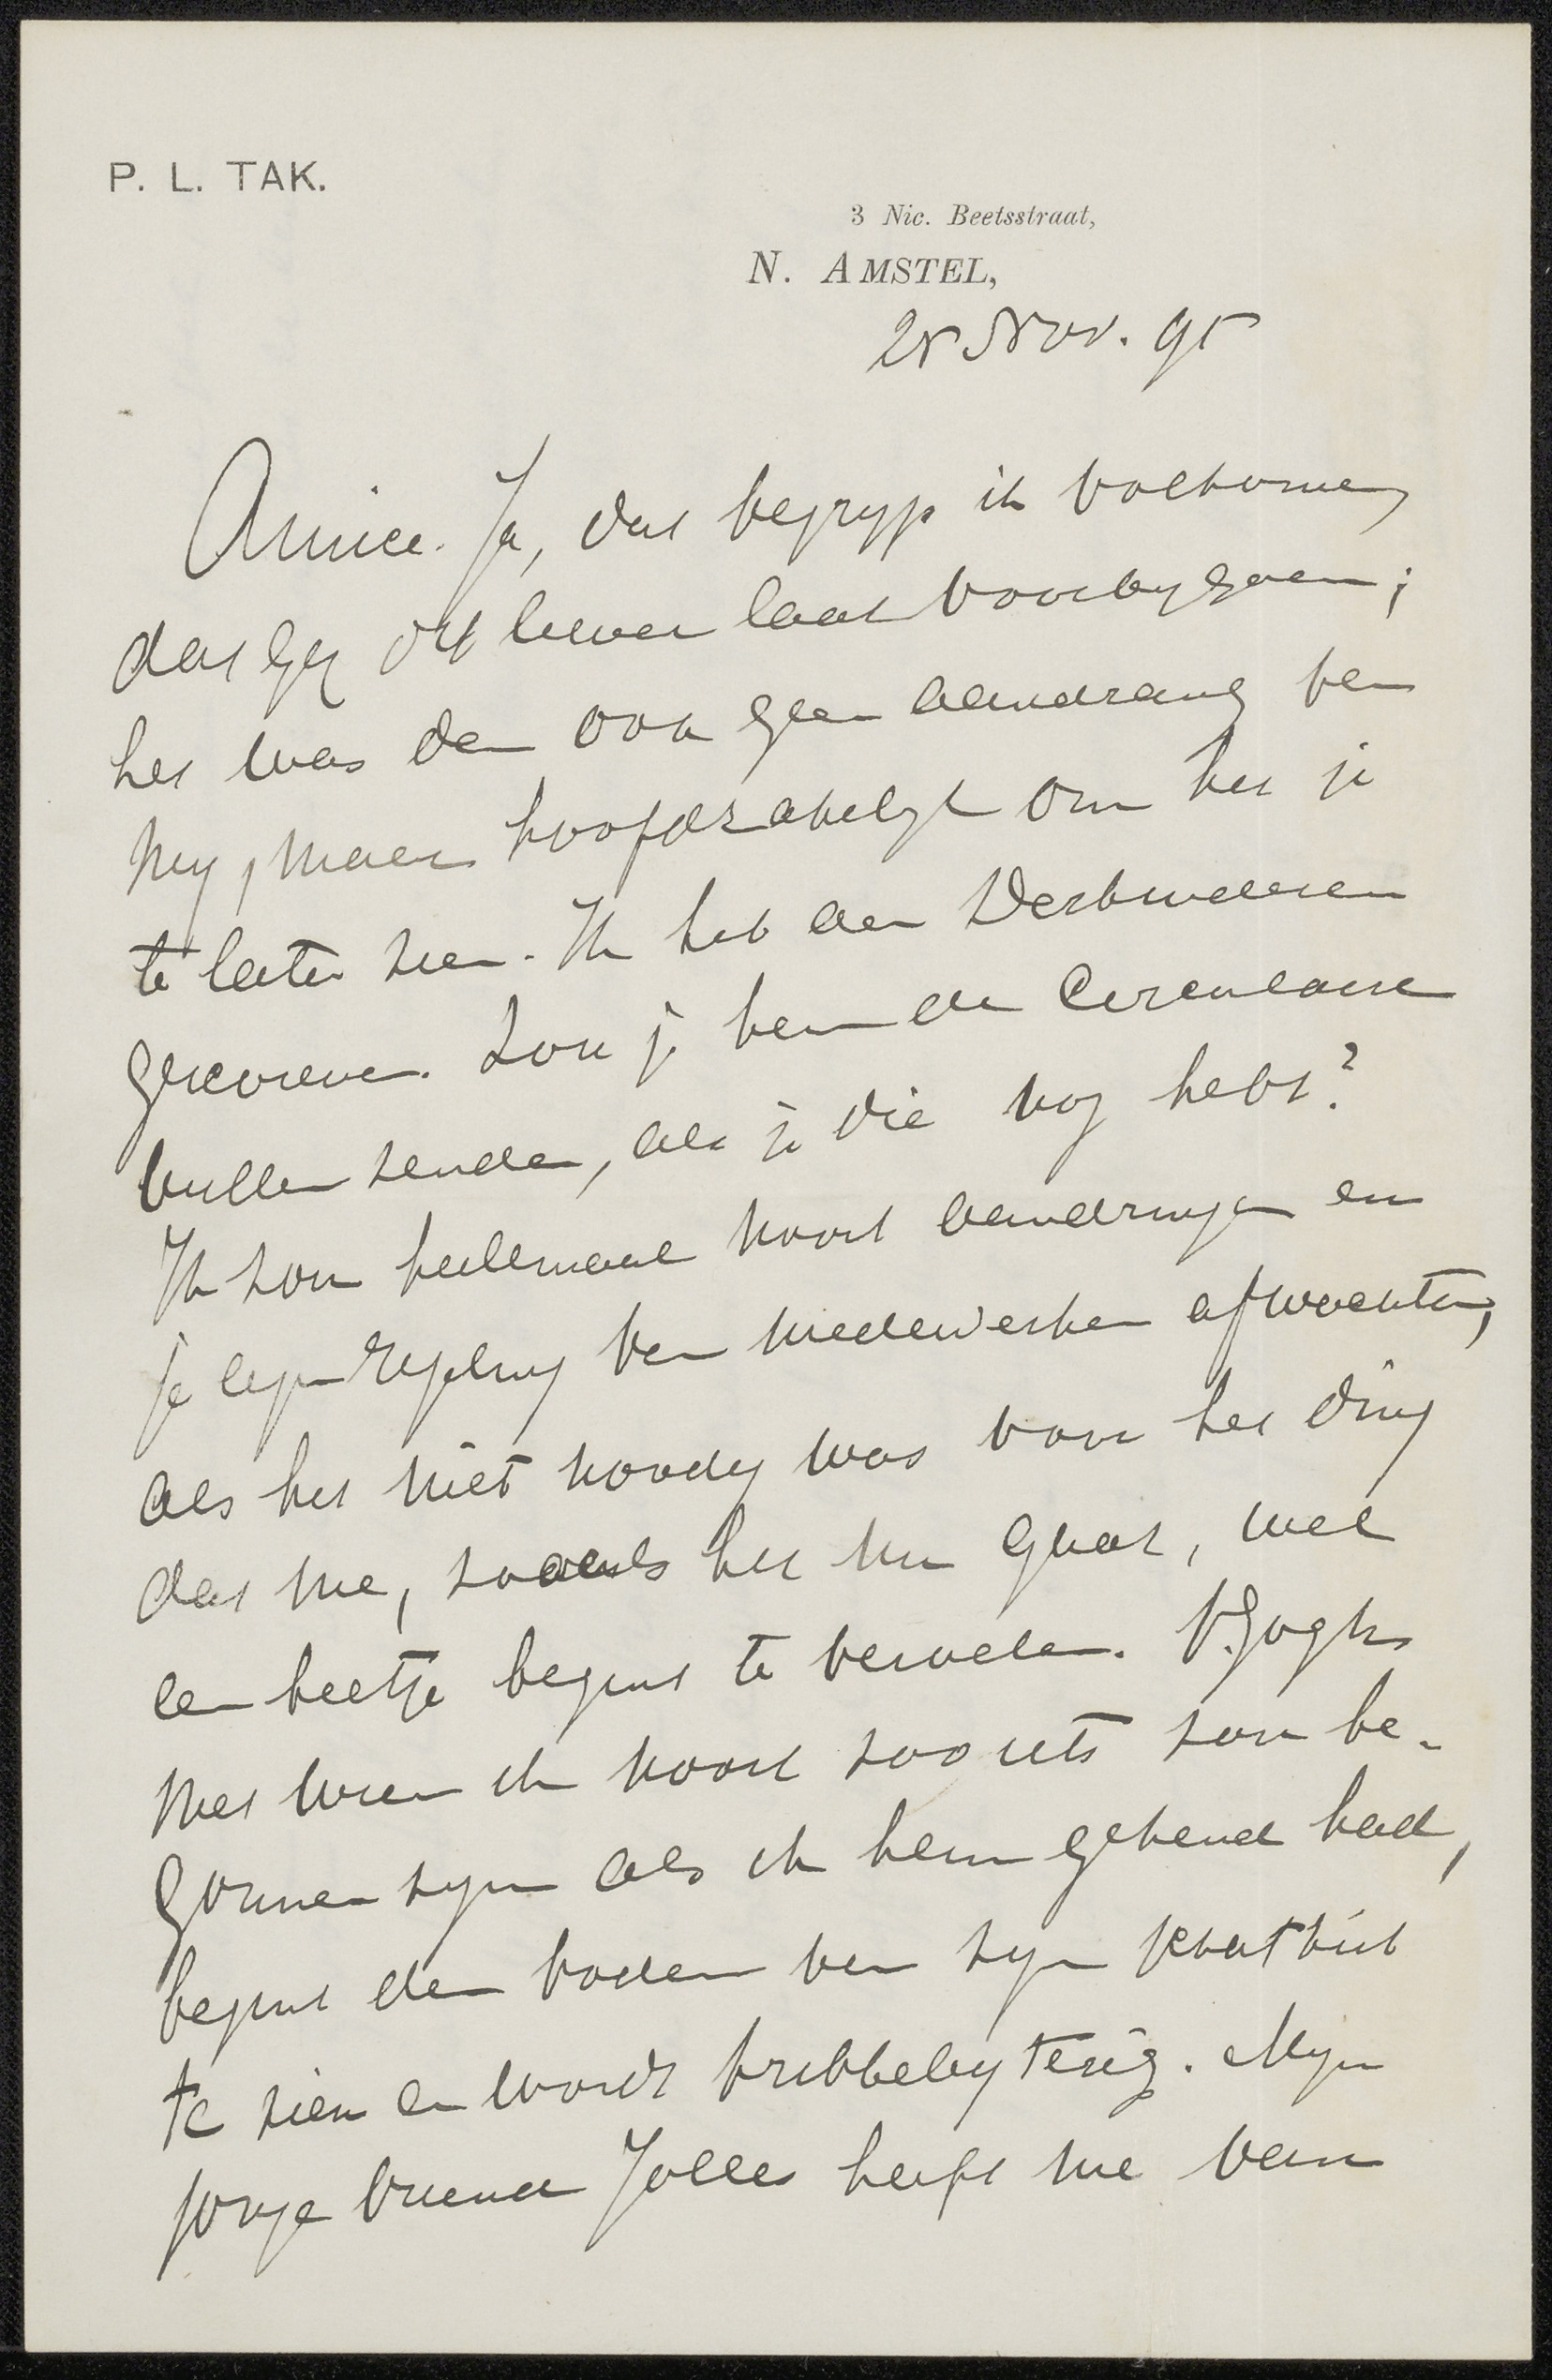 P. L. TAK.
3 Nic. Beetsstraat,
N. AMSTEL,
25 Nov. 95
Amice. Ja, dat begryp ik volkomen,
dat gy dit liever laat voorbygaan;
het was dan ook geen aandrang van
my, maar hoofdzakelyk om het je
te laten zien. Ik heb aan Derkinderen
geschreven. Zou je hem de circulaire
willen zenden, als je die nog hebt?
Ik zou heelemaal nooit aandringen en
je eigen regeling van medewerken afwachten,
als het niet noodig was voor het ding
dat me, zooals het nu gaat, wel
een beetje begint te vervelen. V. Gogh
met wien ik nooit zoo iets zou be-
gonnen zyn als ik hem gekend had,
begint den bodem van zyn
te zien en wordt kribbebyterig. Myn
jonge vriend Jolles heeft me van